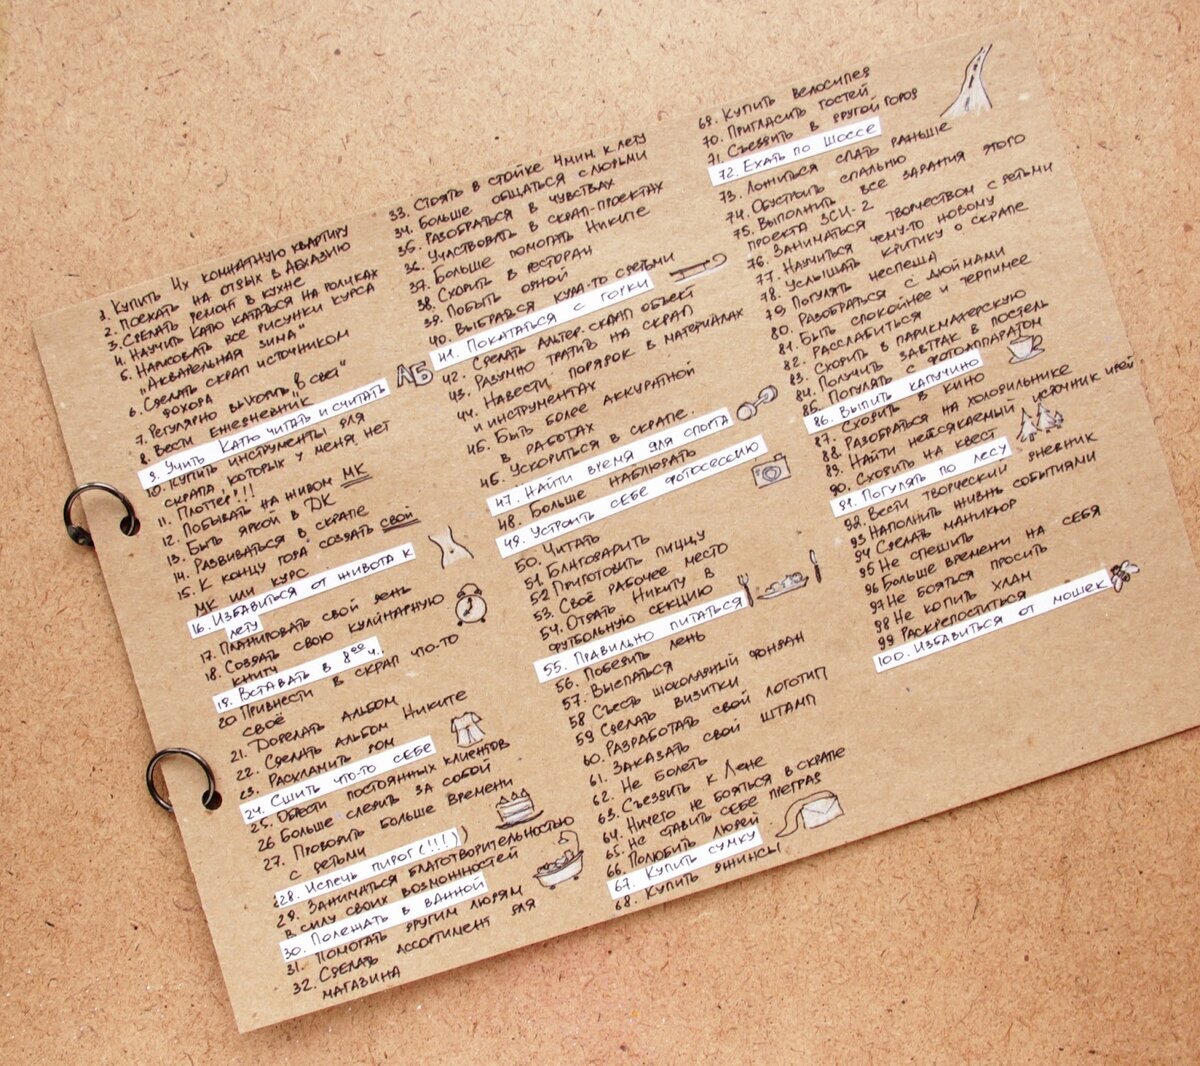 1. Купить 4х комнатную квартиру
2. Поехать на отдых в Абхазию
3. Сделать ремонт в кухне
4. Научить Катю кататься на роликах
5. Нарисовать все рисунки курса
"Акварельная зима"
6. Сделать скрап источником
дохода
7. Регулярно выходить "в свет"
8. Вести ежедневник
9. Учить Катю читать и считать
АБ
10. Купить инструменты для
скрапа, которых у меня нет
11. Плоттер!!!
12. Побывать на живом МК
13. Быть яркой в ДК
14. Развиваться в скрапе
15. К концу года создать свой
МК или курс
16. Избавиться от живота к
лету
17. Планировать свой день
18. Создать свою кулинарную
книгу
19. Вставать в 8⁰⁰ ч.
20 Привнести в скрап что-то
своё
21. Доделать альбом
22. Сделать альбом Никите
23. Расхламить дом
24. Сшить что-то себе
25. Обрести постоянных клиентов
26 Больше следить за собой
27. Проводить больше времени
с детьми
28. Испечь пирог (!!!)
29. Заниматься благотворительностью
в силу своих возможностей
30. Полежать в ванной
31. Помогать другим людям
32. Сделать ассортимент для
магазина
33. Стоять в стойке 4мин. к лету
34. Больше общаться с людьми
35. Разобраться в чувствах
36. Участвовать в скрап-проектах
37. Больше помогать Никите
38. Сходить в ресторан
39. Побыть одной
40. Выбраться куда-то с детьми
41. Покататься с горки
42. Сделать альтер. скрап объект
43. Разумно тратить на скрап
44. Навести порядок в материалах
и инструментах
45. Быть более аккуратной
в работах
46. Ускориться в скрапе.
47. Найти время для спорта
48. Больше наблюдать
49. Устроить себе фотосессию
50. Читать
51. Благодарить
52 Приготовить пиццу
53. Своё рабочее место
54. Отдать Никиту в
футбольную секцию
55. Правильно питаться
56. Победить лень
57. Выспаться
58 Съесть шоколадный фондан
59 Сделать визитки
60. Разработать свой логотип
61. Заказать свой штамп
62. Не болеть
63. Съездить к Лене
64. Ничего не бояться в скрапе
65. Не ставить себе преград
66. Полюбить людей
67. Купить сумку
68. Купить джинсы
69. Купить велосипед
70. Пригласить гостей
71. Съездить в другой город
72. Ехать по шоссе
73. Ложиться спать раньше
74. Обустроить спальню
75. Выполнить все задания этого
проекта ЗСИ-2
76. Заниматься творчеством с детьми
77. Научиться чему-то новому
78. Услышать критику о скрапе
79 Погулять неспеша
80. Разобраться с дюймами
81. Быть спокойнее и терпимее
82. Расслабиться
83. Сходить в парикмахерскую
84. Получить завтрак в постель
85. Погулять с фотоаппаратом
86. Выпить капучино
87. Сходить в кино
88. Разобраться на холодильнике
89. Найти неиссякаемый источник идей
90. Сходить на квест
91. Погулять по лесу
92. Вести творческий дневник
93 Наполнить жизнь событиями
94 Сделать маникюр
95 Не спешить
96 Больше времени на себя
97 Не бояться просить
98 Не копить хлам
99 Раскрепоститься
100. Избавиться от мошек